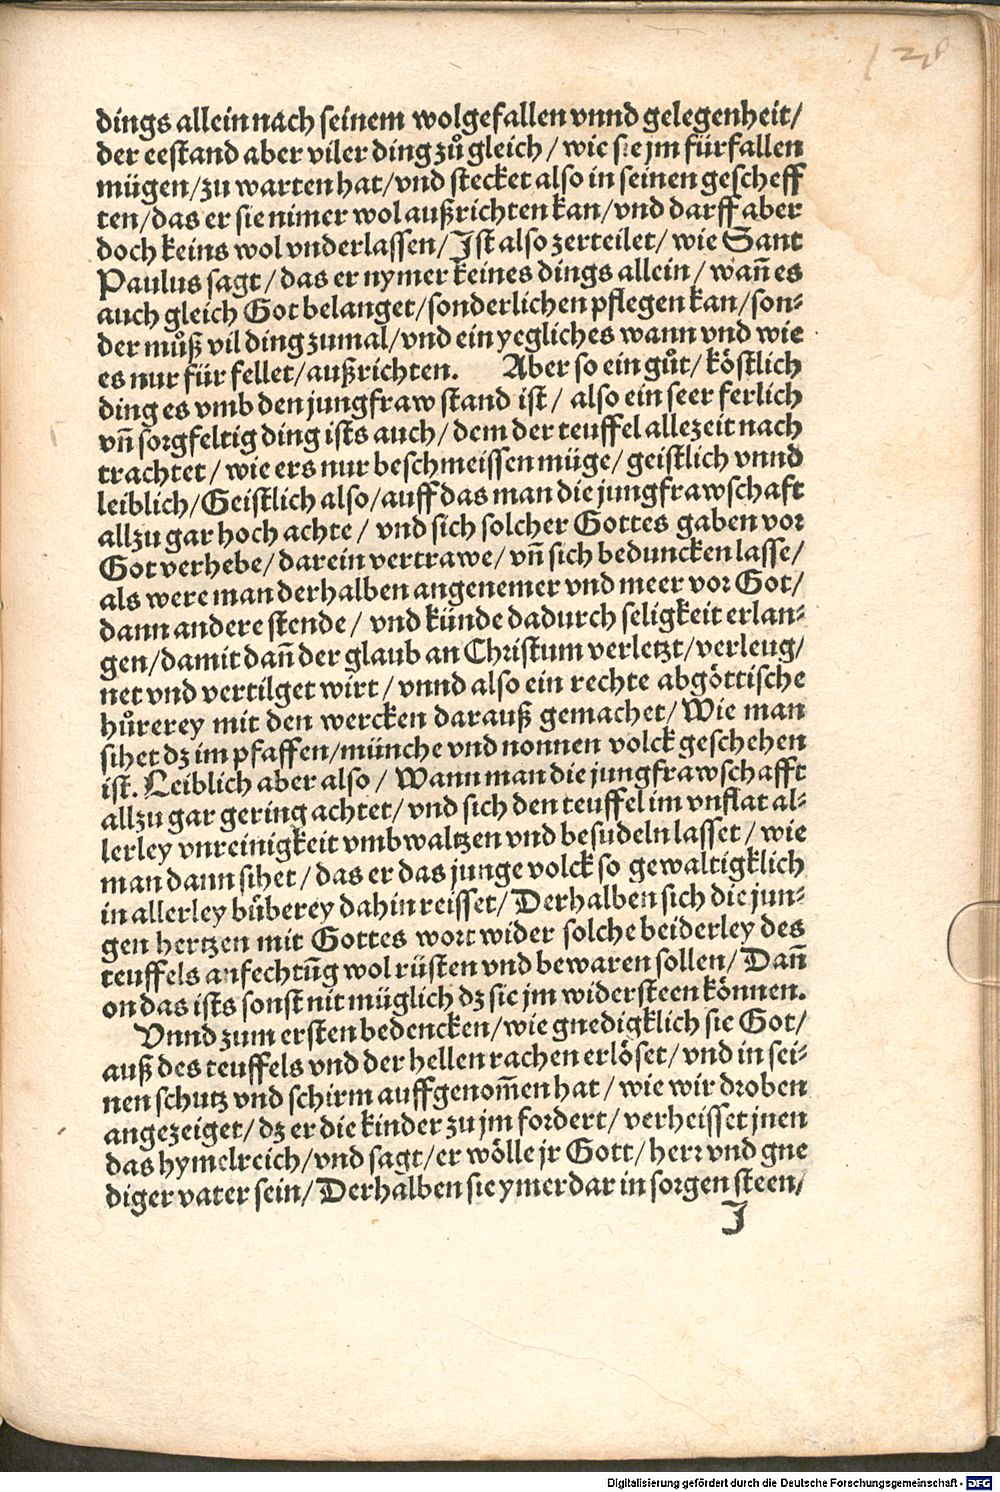 128
dings allein nach seinem wolgefallen vnnd gelegenheit/
der eestand aber viler ding zů gleich / wie sie jm fürfallen
mügen/zu warten hat/vnd stecket also in seinen gescheff
ten/das er sie nimer wol außrichten kan/vnd darff aber
doch keins wol vnderlassen/Ist also zerteilet/ wie Sant
Paulus sagt/das er nymer keines dings allein/wañ es
auch gleich Got belanget/sonderlichen pflegen kan/son-
der můß vil ding zumal/vnd ein yegliches wann vnd wie
es nur für fellet/außrichten. Aber so ein gůt/köstlich
ding es vmb den jungfraw stand ist/ also ein seer ferlich
vñ sorgfeltig ding ists auch/dem der teuffel allezeit nach
trachtet/wie ers nur beschmeissen müge/geistlich vnnd
leiblich/Geistlich also/auff das man die jungfrawschaft
allzu gar hoch achte/ vnd sich solcher Gottes gaben vor
Got verhebe/darein vertrawe/vñ sich beduncken lasse/
als were man derhalben angenemer vnd meer vor Got/
dann andere stende/ vnd künde dadurch seligkeit erlan-
gen/damit dañ der glaub an Christum verletzt/verleug/
net vnd vertilget wirt/vnnd also ein rechte abgöttische
hůrerey mit den wercken darauß gemachet/Wie man
sihet dz im pfaffen/münche vnd nonnen volck geschehen
ist. Leiblich aber also/ Wann man die jungfrawschafft
allzu gar gering achtet/vnd sich den teuffel im vnflat al-
lerley vnreinigkeit vmbwaltzen vnd besudeln lasset/wie
man dann sihet/das er das junge volck so gewaltigklich
in allerley bůberey dahin reisset/Derhalben sich die jun-
gen hertzen mit Gottes wort wider solche beiderley des
teuffels anfechtũg wol rüsten vnd bewaren sollen/Dañ
on das ists sonst nit müglich dz sie jm widersteen können.
Vnnd zum ersten bedencken/wie gnedigklich sie Got/
auß des teuffels vnd der hellen rachen erlöset/vnd in sei-
nen schutz vnd schirm auffgenom̃en hat/wie wir droben
angezeiget/dz er die kinder zu jm fordert/verheisset jnen
das hymelreich/vnd sagt/er wölle jr Gott/herr vnd gne
diger vater sein/Derhalben sie ymerdar in sorgen steen/
J
Digitalisierung gefördert durch die Deutsche Forschungsgemeinschaft - DFG